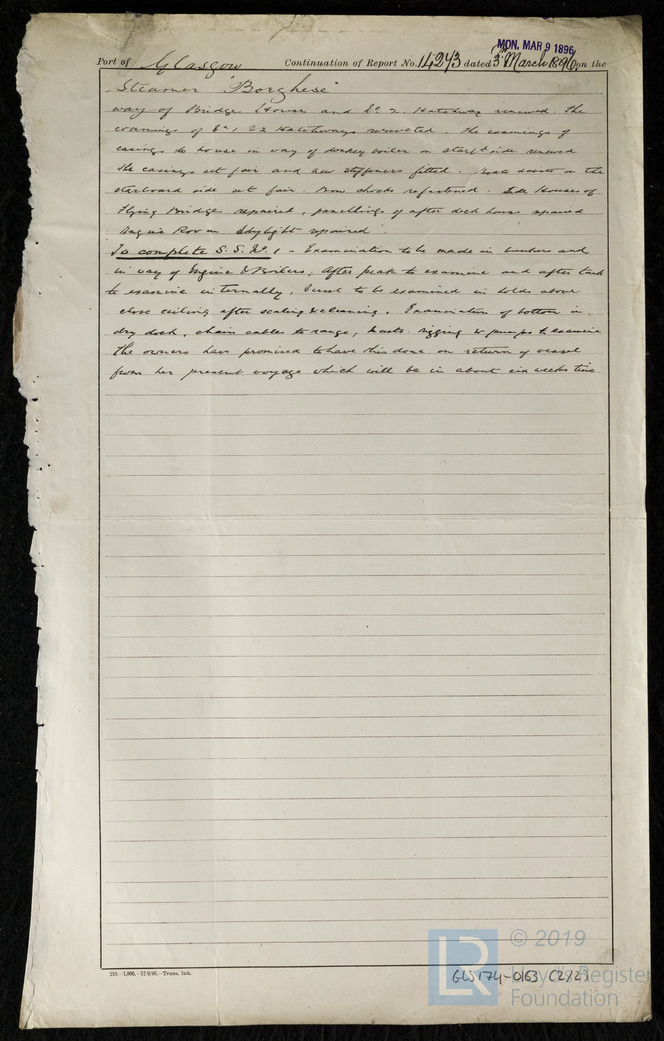 MON. MAR 9 1896
Port of Glasgow Continuation of Report No. 14243 dated 3rd March 1896 on the
Steamer "Borghese"
way of Bridge House and No 2 Hatchway renewed. The
coamings of No 1 & 2 Hatchways reriveted. The coamings of
casings to house in way of donkey boiler on starbd side renewed
the casings set fair and new stiffeners fitted. Boats davits on the
starboard side set fair. Bow chocks refastened. Side Houses of
Flying Bridge repaired, panellings of after deck house repaired
Engine Room Skylight repaired.
To complete S.S. No. 1 - Examination to be made in bunkers and
in way of Engine & Boilers, After peak to examine and after tank
to examine internally. Vessel to be examined in holds above
close ceiling after scaling & cleaning. Examination of bottom in
dry dock, chain cables to range, masts rigging & pumps to examine
The owners have promised to have this done on return of vessel
from her present voyage which will be in about six weeks time.
210.-1,000.-17/9/95.-Trans. Ink.
© 2019
LR
Lloyd's Register
Foundation
GLS174-0163 (2/2)